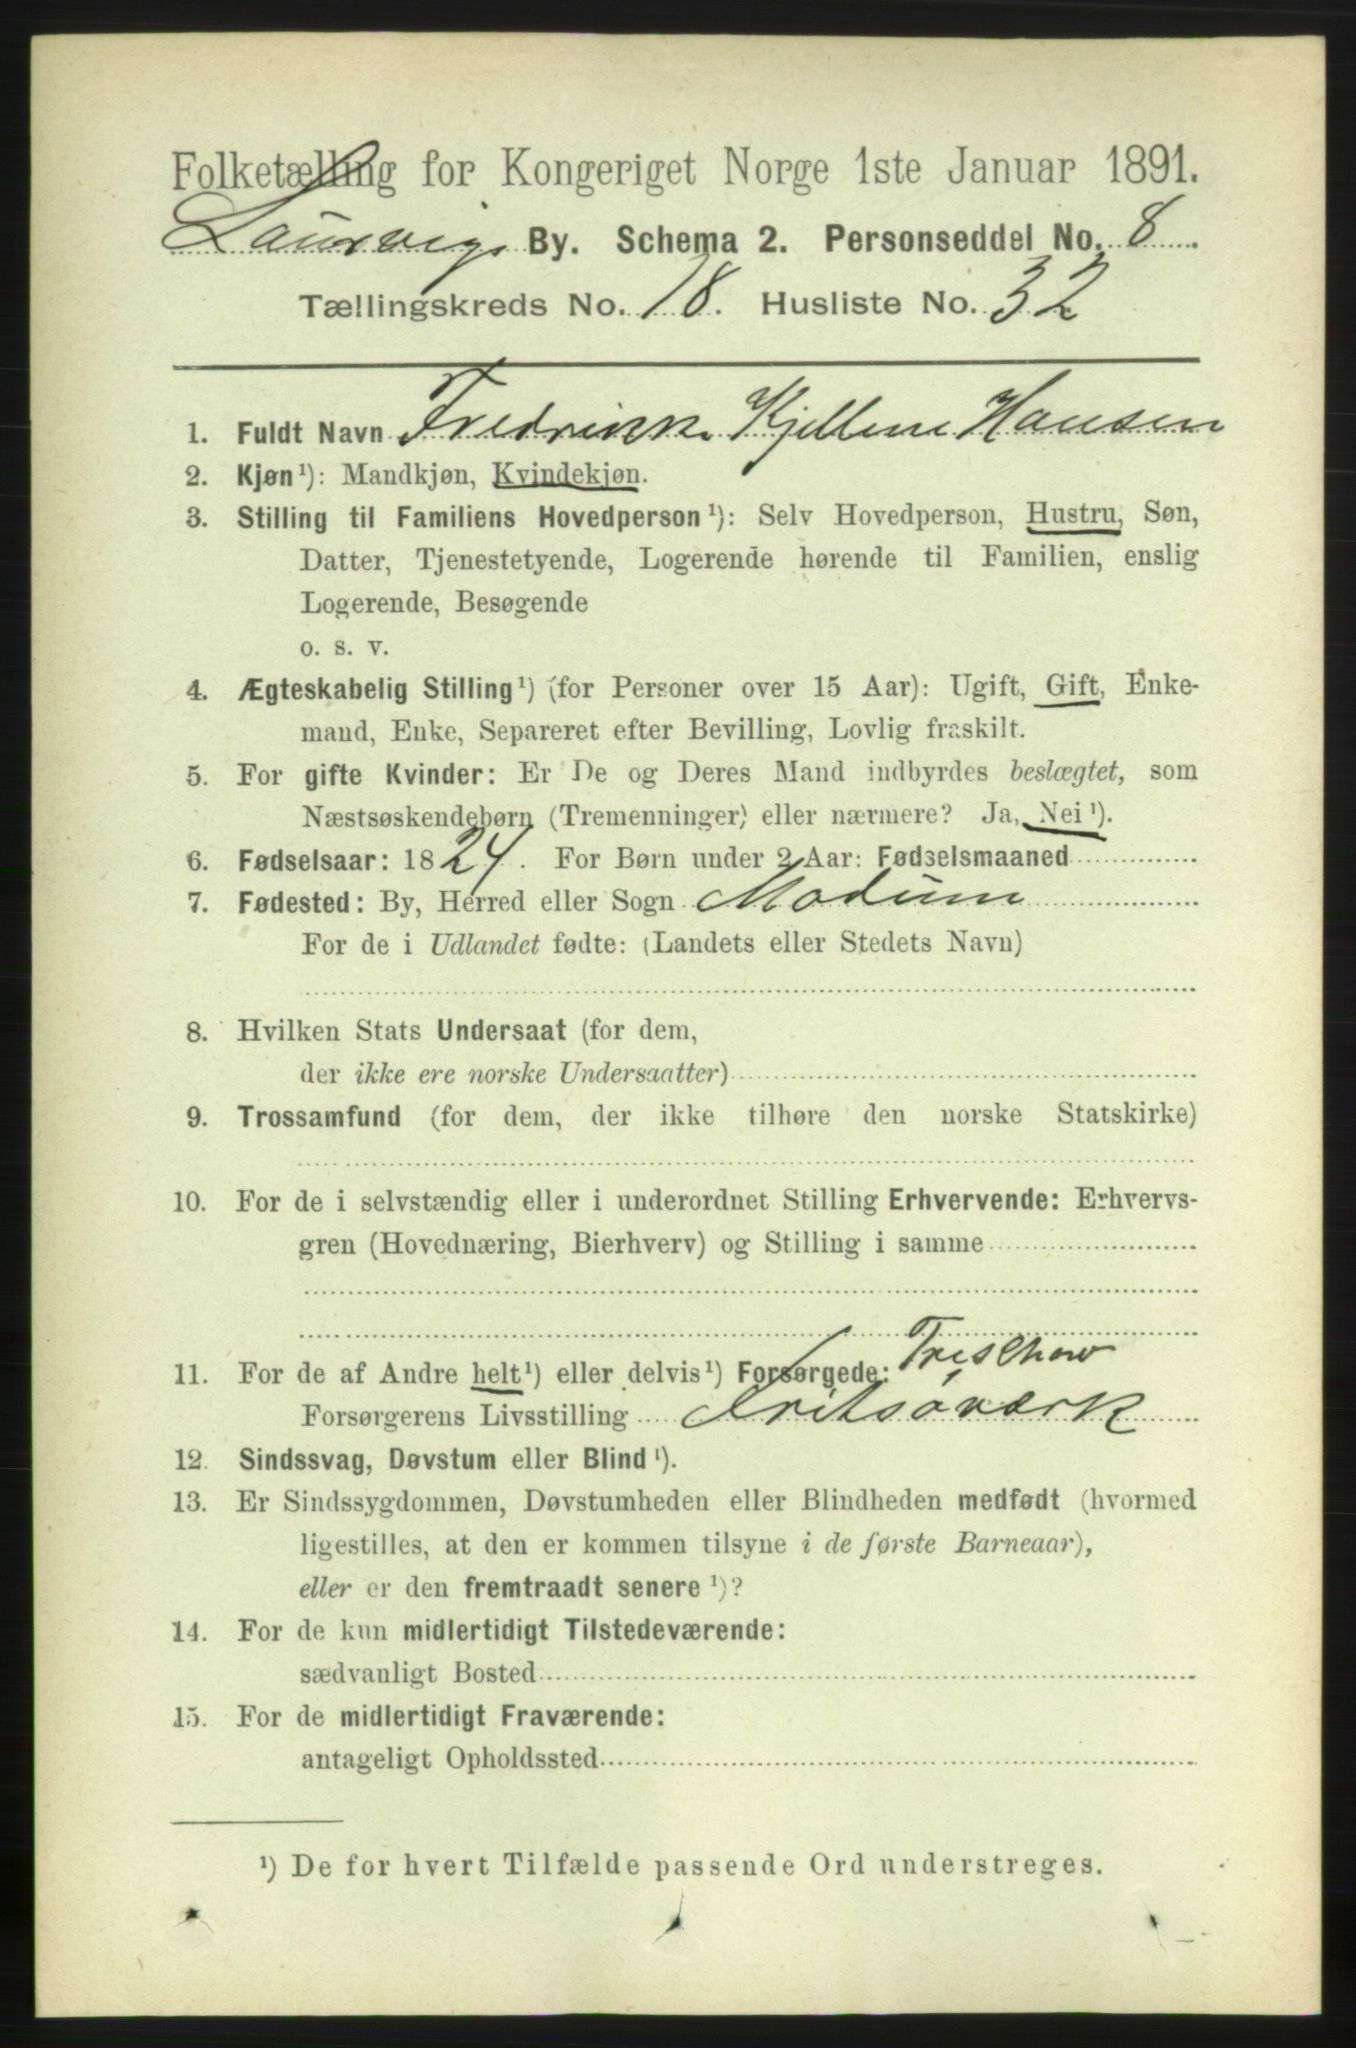 Folketælling for Kongeriget Norge 1ste Januar 1891.
Laurvigs By. Schema 2. Personseddel No. 8.
Tællingskreds No. 18. Husliste No. 32
1. Fuldt Navn Fredrikke Kjellene Hansen
2. Kjøn¹): Mandkjøn, Kvindekjøn.
3. Stilling til Familiens Hovedperson¹): Selv Hovedperson, Hustru, Søn,
Datter, Tjenestetyende, Logerende hørende til Familien, enslig
Logerende, Besøgende
o. s. v.
4. Ægteskabelig Stilling¹) (for Personer over 15 Aar): Ugift, Gift, Enke-
mand, Enke, Separeret efter Bevilling, Lovlig fraskilt.
5. For gifte Kvinder: Er De og Deres Mand indbyrdes beslægtet, som
Næstsøskendebørn (Tremenninger) eller nærmere? Ja, Nei¹).
6. Fødselsaar: 1824. For Børn under 2 Aar: Fødselsmaaned
7. Fødested: By, Herred eller Sogn Modum
For de i Udlandet fødte: (Landets eller Stedets Navn)
8. Hvilken Stats Undersaat (for dem,
der ikke ere norske Undersaatter)
9. Trossamfund (for dem, der ikke tilhøre den norske Statskirke)
10. For de i selvstændig eller i underordnet Stilling Erhvervende: Erhvervs-
gren (Hovednæring, Bierhverv) og Stilling i samme
11. For de af Andre helt¹) eller delvis¹) Forsørgede: Treschow
Forsørgerens Livsstilling Fritsøværk
12. Sindssvag, Døvstum eller Blind¹).
13. Er Sindssygdommen, Døvstumheden eller Blindheden medfødt (hvormed
ligestilles, at den er kommen tilsyne i de første Barneaar),
eller er den fremtraadt senere¹)?
14. For de kun midlertidigt Tilstedeværende:
sædvanligt Bosted
15. For de midlertidigt Fraværende:
antageligt Opholdssted
¹) De for hvert Tilfælde passende Ord understreges.